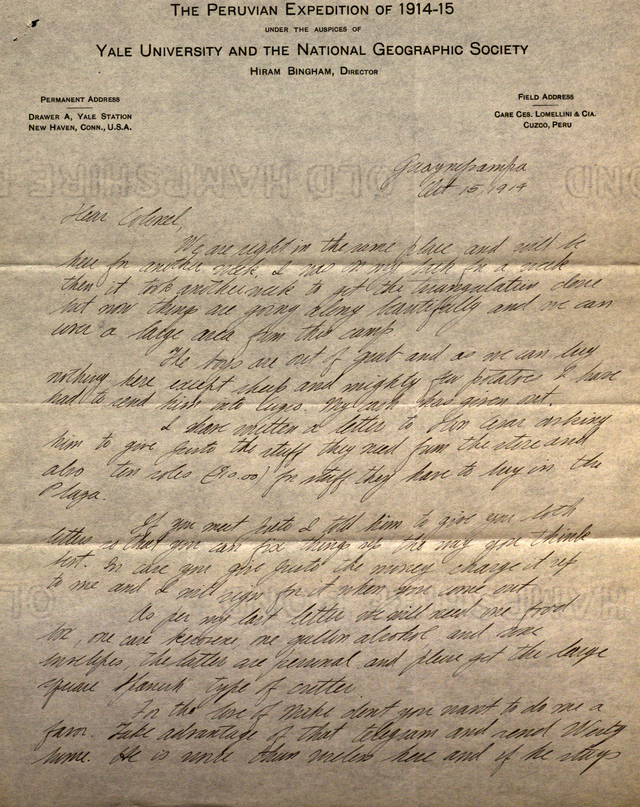 THE PERUVIAN EXPEDITION OF 1914-15
UNDER THE AUSPICES OF
YALE UNIVERSITY AND THE NATIONAL GEOGRAPHIC SOCIETY
HIRAM BINGHAM, DIRECTOR
PERMANENT ADDRESS
DRAWER A, YALE STATION
NEW HAVEN, CONN., U.S.A.
FIELD ADDRESS
CARE CES. LOMELLINI & CIA.
CUZCO, PERU
OLD HAMPSHIRE BOND
Oct 15, 1914
Dear Colonel,
We are right in the same place and will be
here for another week. I was on my back for a week
then it took another week to get the triangulation done
but now things are going along beautifully and we can
cover a large area from this camp
The boys are out of grub and as we can buy
nothing here except sheep and mighty few potatoes I have
had to send him into Cuzco. My cash has given out.
I have written a letter to Don Cesar asking
him to give Justo the stuff they need from the store and
also ten soles for stuff they have to buy in the
Plaza.
If you meet Justo I told him to give you both
letters so that you can fix things up the way you think
best. In case you give Justo the money charge it up
to me and I will sign for it when you come out.
As per my last letter we will need one
one case kerosene, one gallon alcohol and some
envelopes, the latter are personal and please get the large
square type of
For the love of Mike dont you want to do me a
favor. Take advantage of that telegram and send
home. He is more than useless here and if he stays